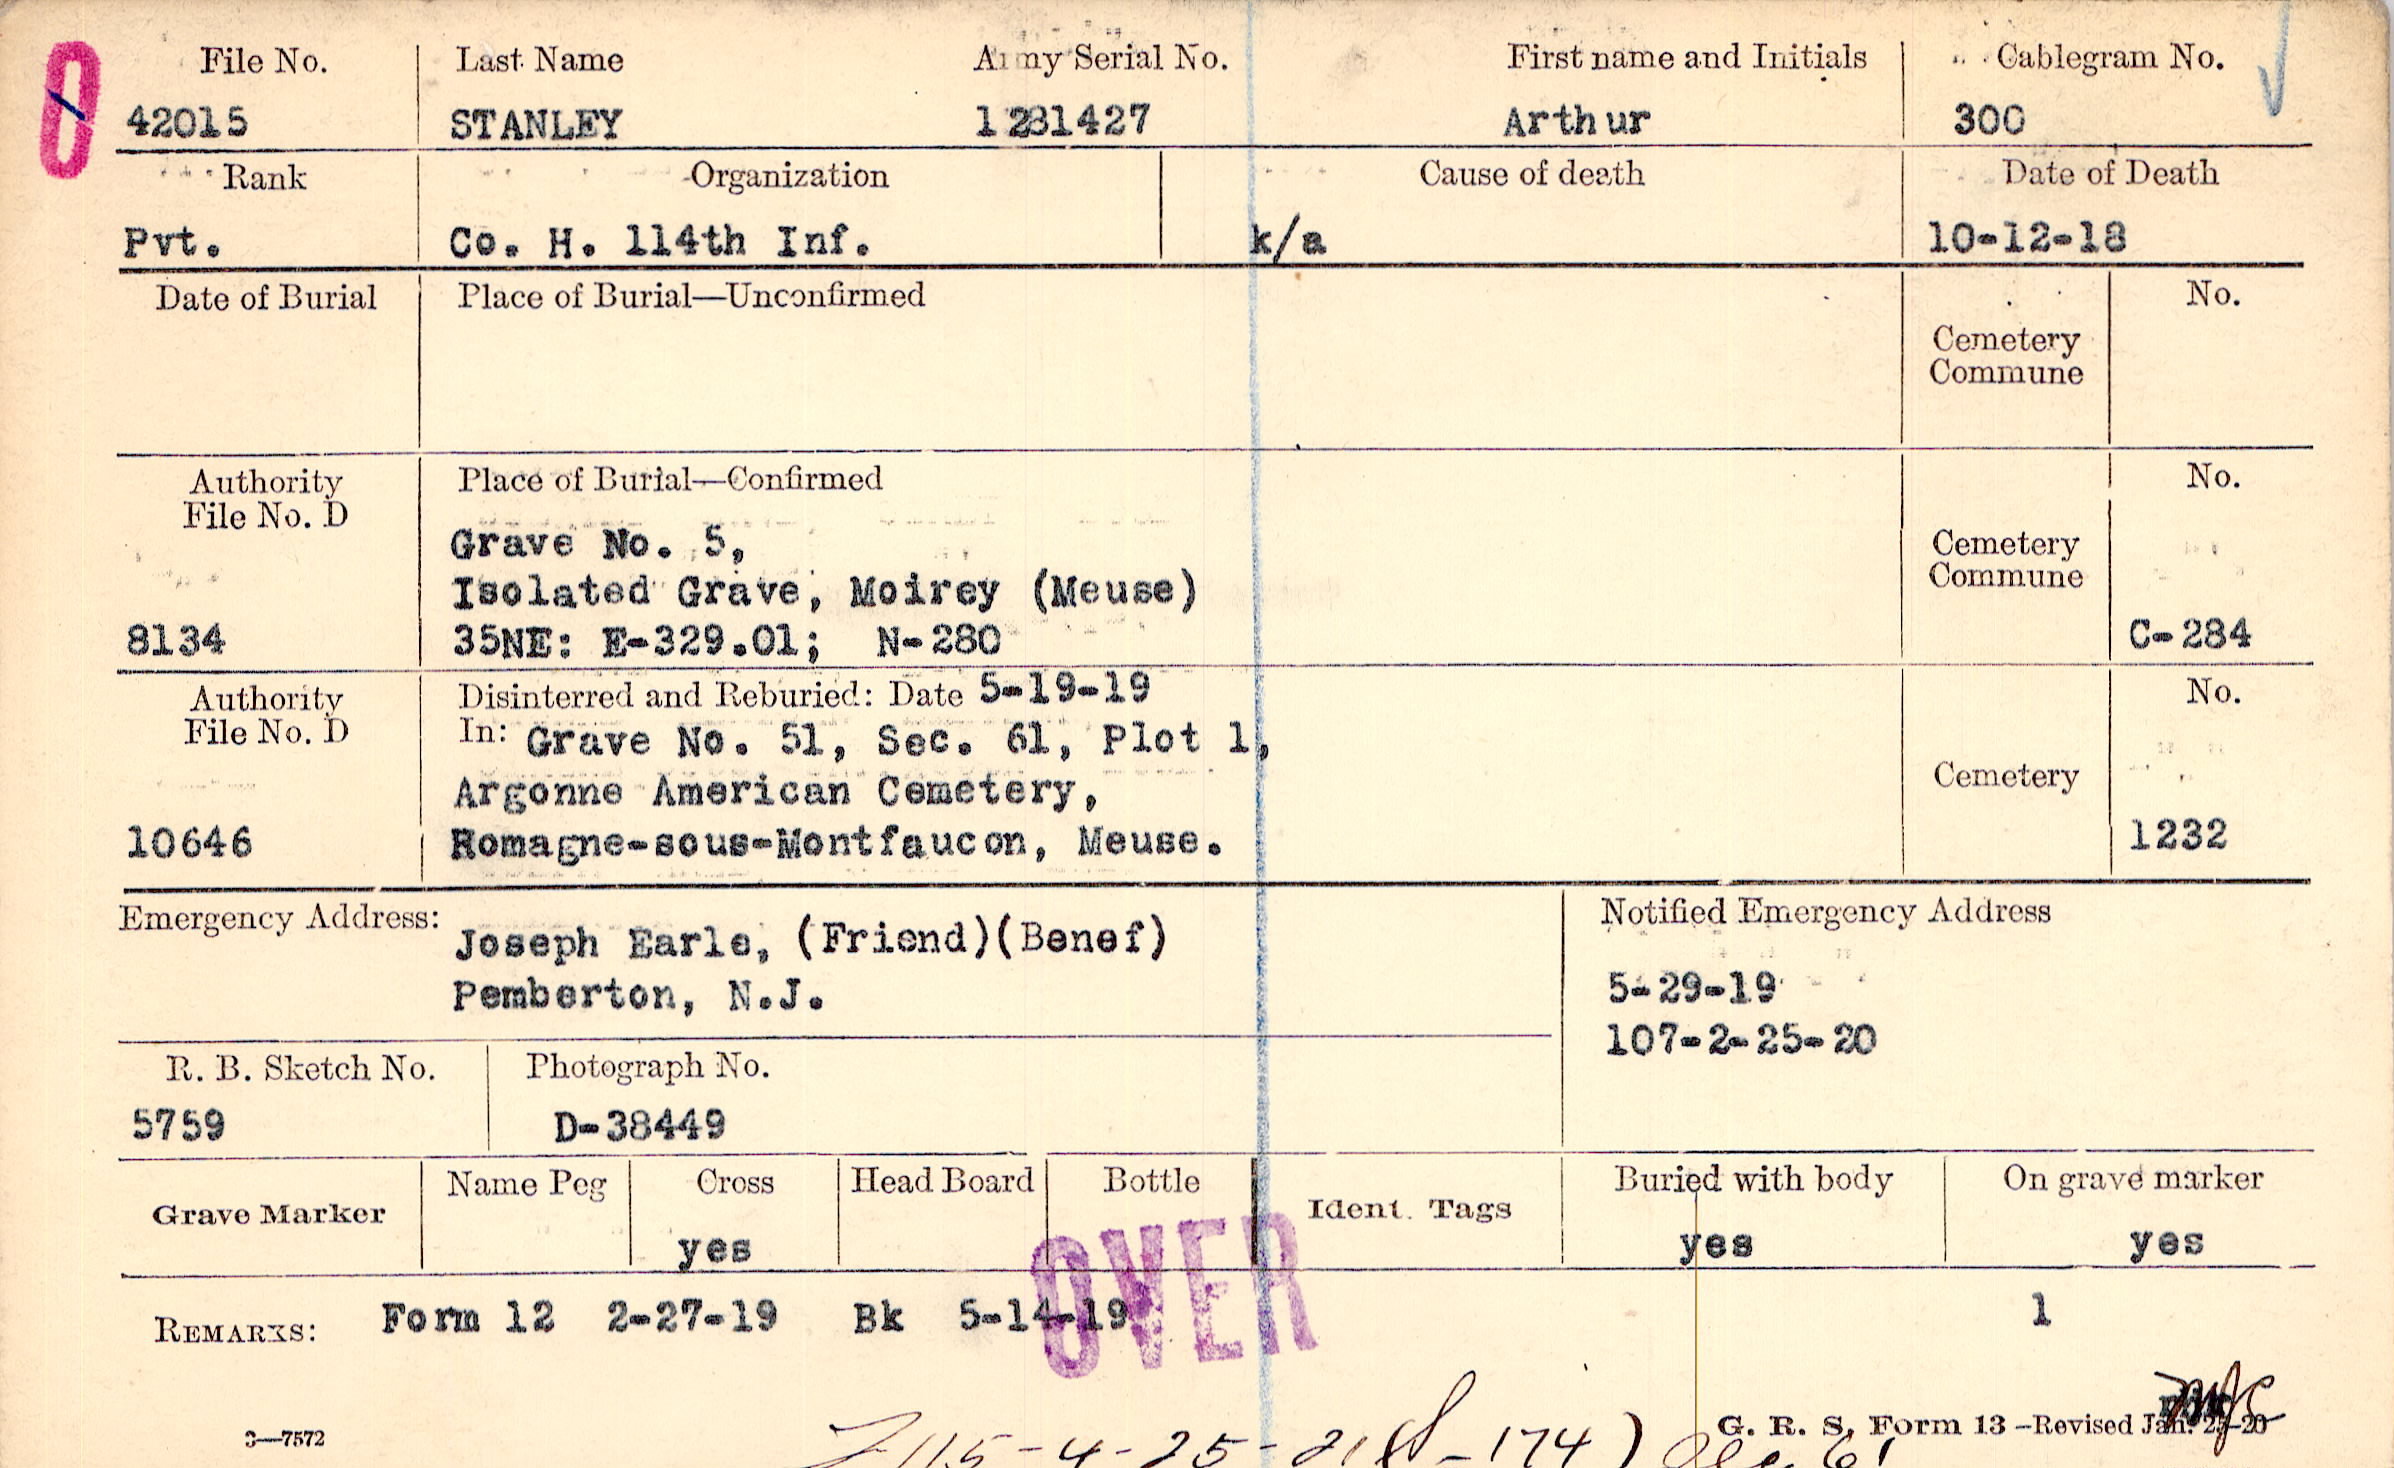 0
File No. Last Name Army Serial No. First name and Initials Cablegram No.
42015 STANLEY 1281427 Arthur 300
Rank Organization Cause of death Date of Death
Pvt. Co. H. 114th Inf. k/a 10-12-18
Date of Burial Place of Burial—Unconfirmed No.
Cemetery
Commune
Authority Place of Burial—Confirmed No.
File No. D
Grave No. 5,
Cemetery
Commune
Isolated Grave, Moirey (Meuse)
8134 35NE: E-329.01; N-280 C-284
Authority Disinterred and Reburied: Date 5-19-19 No.
File No. D In: Grave No. 51, Sec. 61, Plot 1,
Argonne American Cemetery, Cemetery
10646 Romagne-sous-Montfaucon, Meuse. 1232
Emergency Address: Notified Emergency Address
Joseph Earle, (Friend)(Benef)
Pemberton, N.J.
5-29-19
107-2-25-20
R. B. Sketch No. Photograph No.
5759 D-38449
Grave Marker Name Peg Cross Head Board Bottle Ident. Tags Buried with body On grave marker
yes yes yes
OVER
REMARKS: Form 12 2-27-19 Bk 5-14-19 1
3—7572
G. R. S. Form 13—Revised Jan. 25-20
115-4-25-21